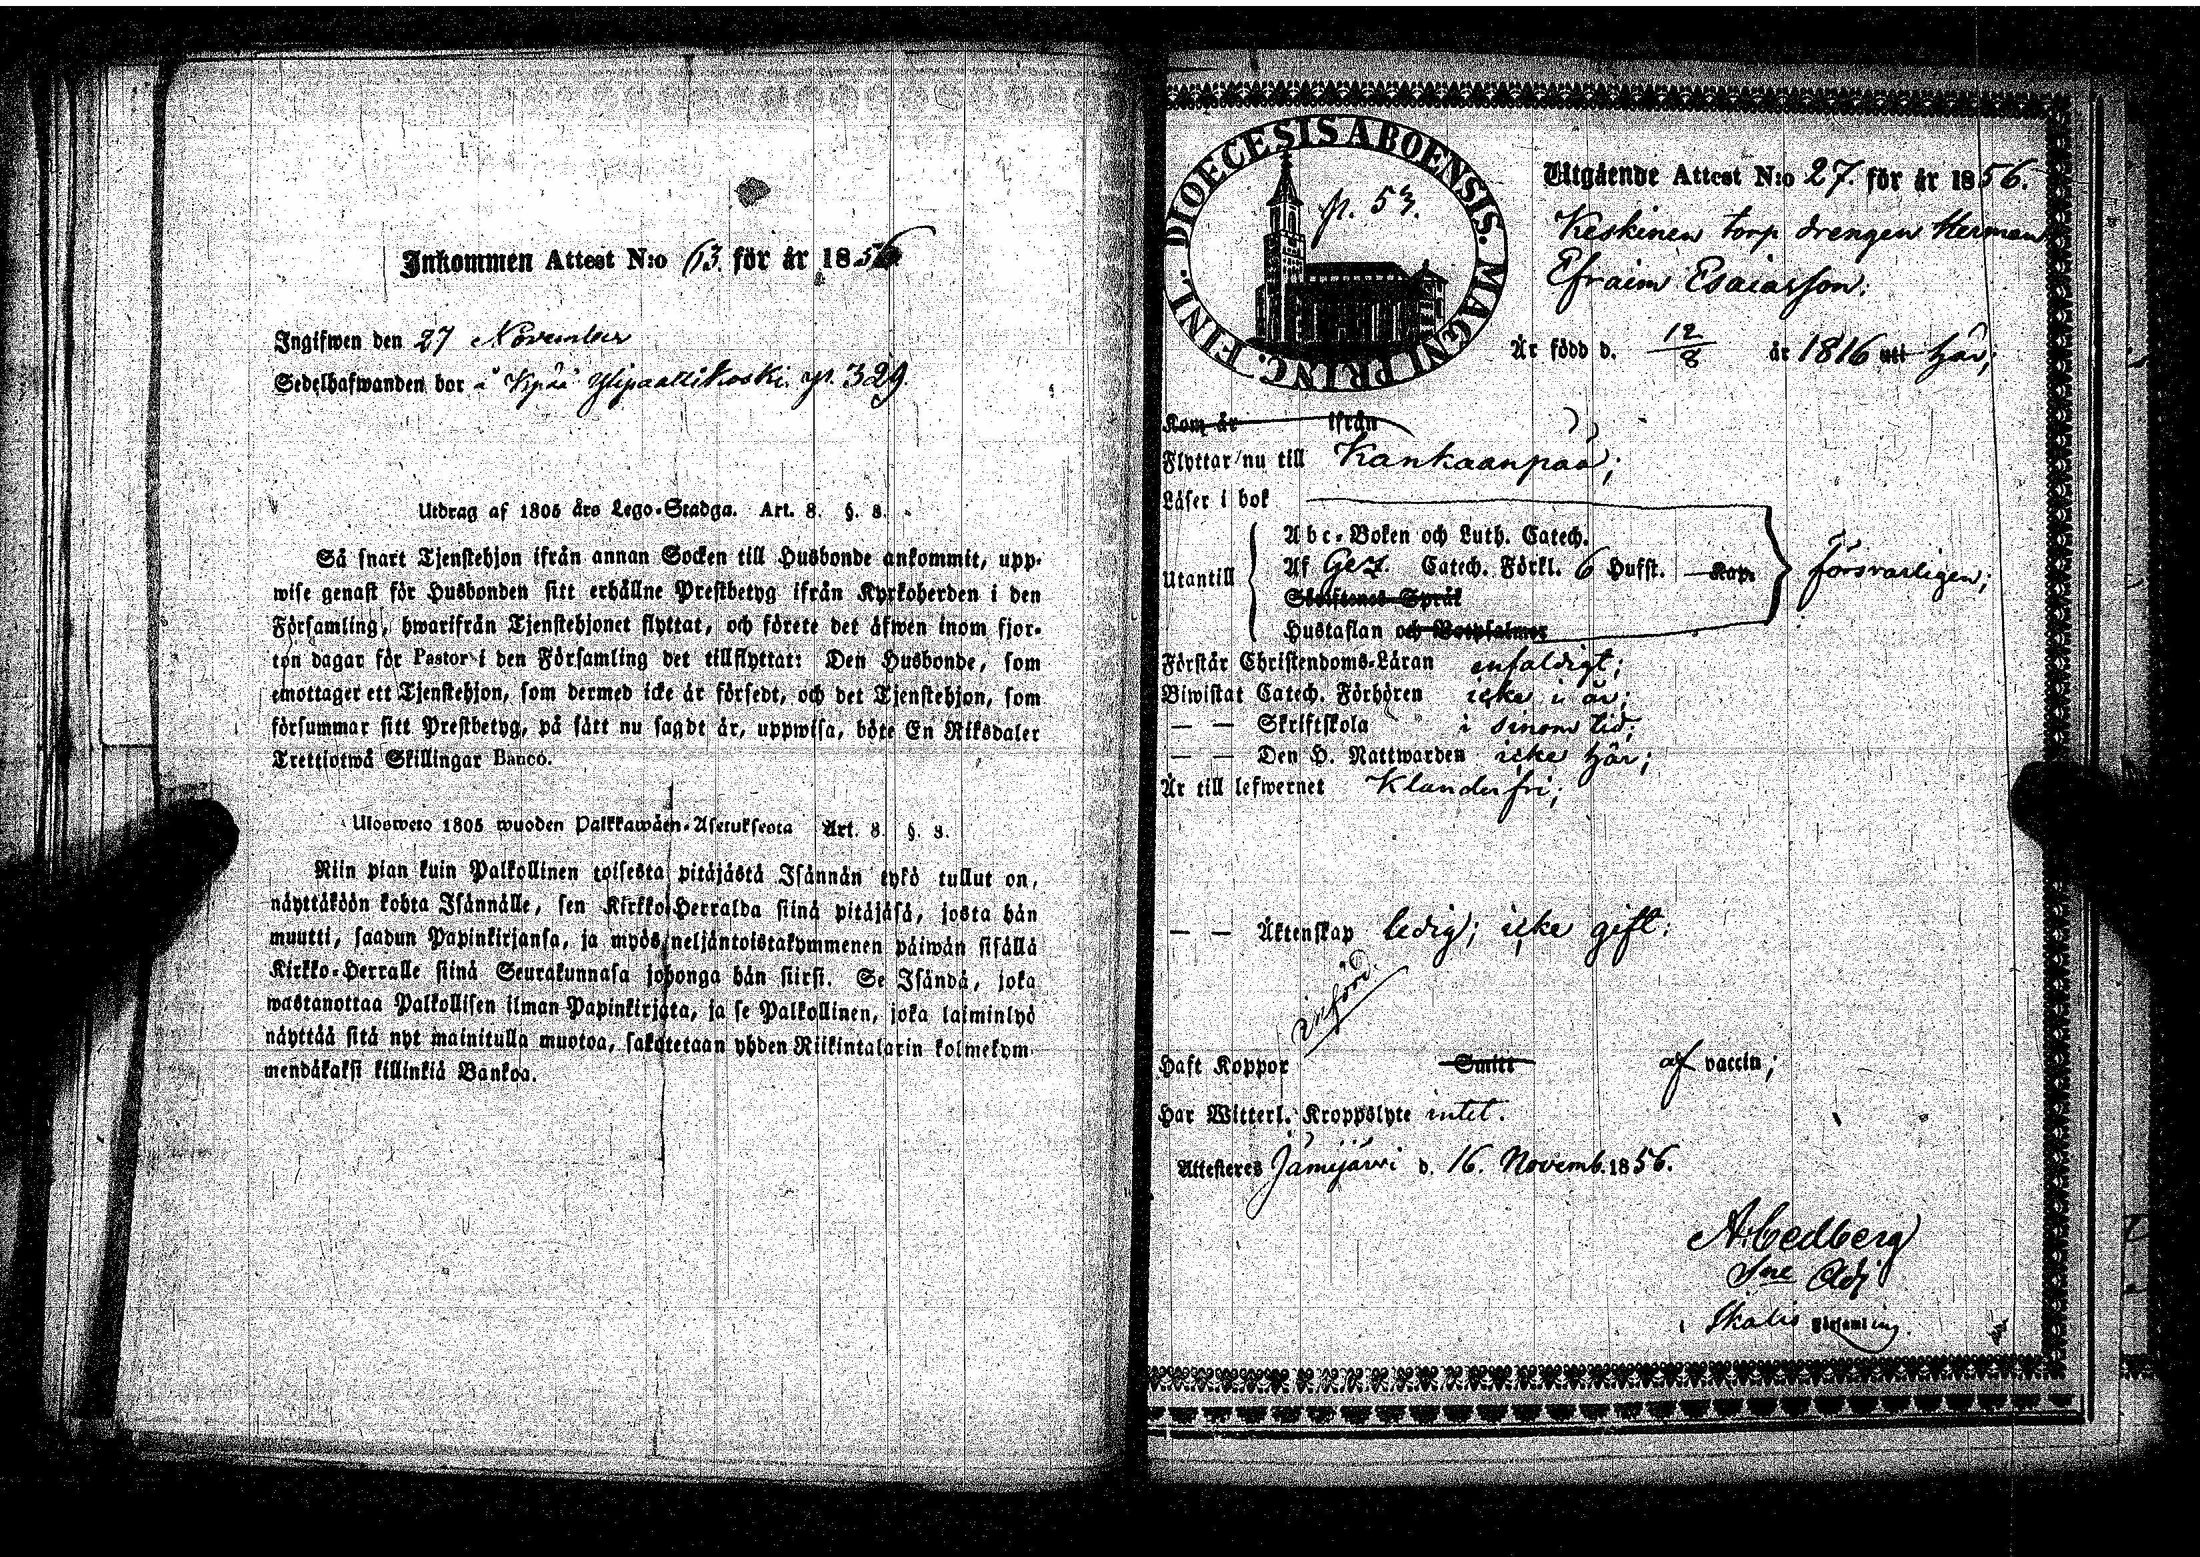 Inkommen Attest N:o 63. för år 1856
Ingifwen den 27 November
Sedelhafwanden bor å Kpää Ylipaattikoski p. 329.
Utdrag af 1805 års Lego-Stadga. Art. 8. §. 8.
Så snart Tjenstehjon ifrån annan Socken till Husbonde ankommit, upp-
wise genast för Husbonden sitt erhållne Prestbetyg ifrån Kyrkoherden i den
Församling, hwarifrån Tjenstehjonet flyttat, och förete det äfwen inom fjor-
ton dagar för Pastor i den Församling det tillflyttat: Den Husbonde, som
emottager ett Tjenstehjon, som dermed icke är försedt, och det Tjenstehjon, som
försummar sitt Prestbetyg, på sätt nu sagdt är, uppwisa, böte En Riksdaler
Trettiotwå Skillingar Banco.
Ulosweto 1805 wuoden Palkkawäen-Asetuksesta Art. 8. §. 8.
Niin pian kuin Palkollinen toisesta pitäjästä Isännän tykö tullut on,
näyttäköön kohta Isännälle, sen Kirkko-Herralda siinä pitäjäsä, josta hän
muutti, saadun Papinkirjansa, ja myös neljäntoistakymmenen päiwän sisällä
Kirkko-Herralle siinä Seurakunnasa johonga hän siirsi. Se Isändä, joka
wastanottaa Palkollisen ilman Papinkirjata, ja se Palkollinen, joka laiminlyö
näyttää sitä nyt mainitulla muotoa, sakotetaan yhden Riikintalarin kolmekym-
mendäkaksi killinkiä Bankoa.
DIOECESIS ABOENSIS. MAGNI PRINC. FINL.
p. 53.
Utgående Attest N:o 27. för år 1856.
Keskinen torp drengen Herman
Efraim Esaiasson.
Är född d. 12/8 år 1816 uti här;
Kom år ifrån
Flyttar nu till Kankaanpää;
Läser i bok
Abc-Boken och Luth. Catech.
Utantill Af Gez. Catech. Förkl. 6 Hufst. Kap. försvarligen;
Skriftenes Språk
Hustaflan och Botpsalmer
Förstår Christendoms-Läran enfaldigt;
Biwistat Catech. Förhören icke i år;
— — Skriftskola i sinom tid;
— — Den H. Nattwarden icke här;
Är till lefwernet Klanderfri;
— — Äktenskap ledig; icke gift.
införd.
Haft Koppor Smitt af vaccin;
Har Witterl. Kroppslyte intet.
Attesteras Jämijärvi d. 16. Novemb. 1856.
A. Cedberg
Adj
i Ikalis Församling.